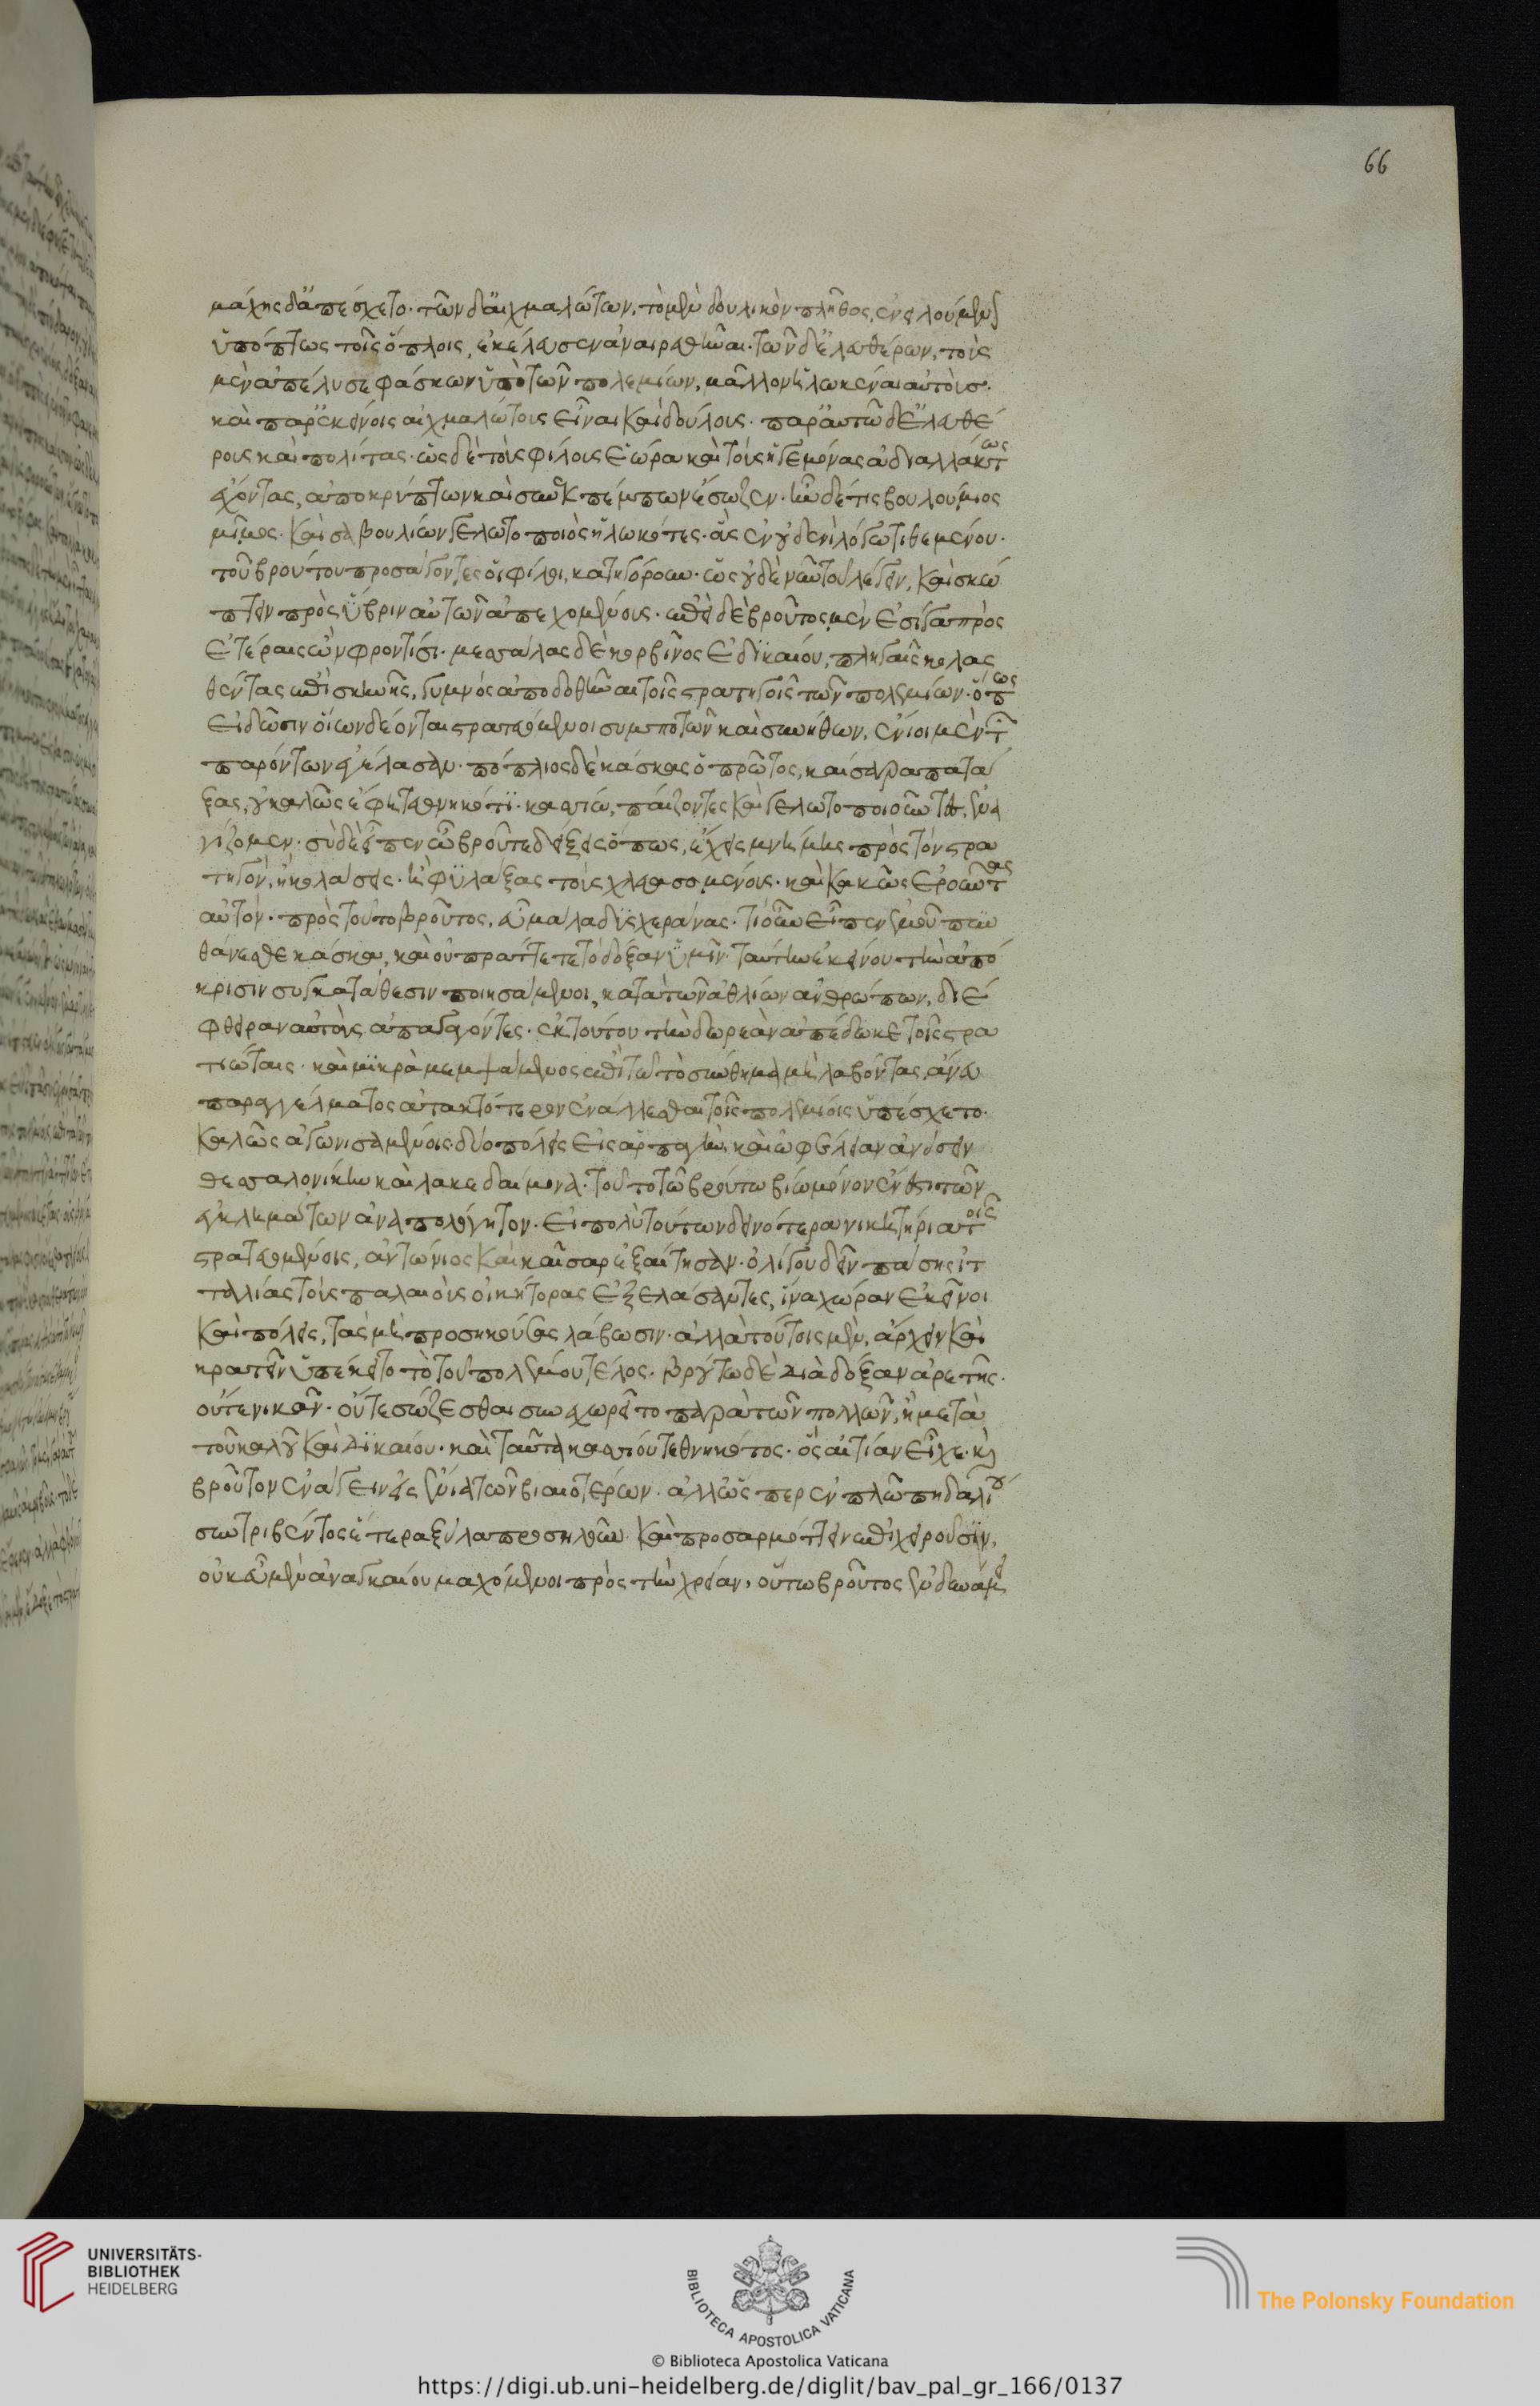 μάχης δ' ἀπέσχετο. τῶν δ' αἰχμαλώτων, τὸ μὲν δουλικὸν πλῆθος, ἐνειλούμενον
ὑπόπτως τοῖς ὅπλοις, ἐκέλευσεν ἀναιρεθῆναι. τῶν δ' ἐλευθέρων, τοὺς
μὲν ἀπέλυσε φάσκων ὑπὸ τῶν πολεμίων, μᾶλλον ἡλωκέναι αὐτοὺς.
καὶ παρ' ἐκείνοις αἰχμαλώτους εἶναι καὶ δούλους. παρ' αὐτῶ δ' ἐλευθέ
ρους καὶ πολίτας. ὡς δὲ τοὺς φίλους ἑώρα καὶ τοὺς ἡγεμόνας ἀδιαλλάκτως
ἔχοντας, ἀποκρύπτων καὶ συνεκπέμπων ἔσωζεν. ἦν δέ τις βουλούμνιος
μῖμος. καὶ σαβουλίων γελωτοποιὸς ἡλωκότες. οὓς ἐν οὐδενὶ λόγω τιθεμένου.
τοῦ βρούτου προσάγοντες οἱ φίλοι, κατηγόρουν. ὡς οὐδὲ νῦν τοῦ λέγειν, καὶ σκώ
πτειν πρὸς ὕβριν αὐτῶν ἀπεχομένους. ἐπεὶ δὲ βροῦτος μὲν ἐσίγα πρὸς
ἑτέραις ὢν φροντίσι. μεσσάλας δὲ κορβῖνος ἐδικαίου, πληγαῖς κολασ
θέντας ἐπὶ σκηνῆς, γυμνοὺς ἀποδοθῆναι τοῖς στρατηγοῖς τῶν πολεμίων. ὅπως
εἰδῶσιν οἵων δέονται στρατευόμενοι συμποτῶν καὶ συνήθων, ἔνιοι μὲν τῶν
παρόντων ἐγέλασαν. πόπλιος δὲ κάσκας ὁ πρῶτος, καίσαρα πατά
ξας, οὐ καλῶς ἔφη τεθνηκότι κασσίω, παίζοντες καὶ γελωτοποιοῦντες, ἐνα
γίζομεν. σὺ δὲ εἶπεν ὦ βροῦτε δείξεις ὅπως, ἔχεις μνήμης πρὸς τὸν στρα
τηγόν, ἢ κολάσεις. ἢ φυλάξας τοὺς χλευασομένους. καὶ κακῶς ἐροῦντας
αὐτόν. πρὸς τοῦτο βροῦτος, εὖ μάλα δυσχεράνας. τί οὖν εἶπεν ἐμοῦ πυν
θάνεσθε κάσκα, καὶ οὐ πράττετε τὸ δόξαν ὑμῖν. ταύτην ἐκείνου τὴν ἀπό
κρισιν συγκατάθεσιν ποιησάμενοι, κατὰ τῶν ἀθλίων ἀνθρώπων, διέ
φθειραν αὐτοὺς ἀπαγαγόντες. ἐκ τούτου τὴν δωρεὰν ἀπέδωκε τοῖς στρα
τιώταις. καὶ μικρὰ μεμψάμενος ἐπὶ τῶ τὸ σύνθημα μὴ λαβόντας, ἄνευ
παραγγέλματος ἀτακτότερον ἐνάλλεσθαι τοῖς πολεμίοις ὑπέσχετο.
καλῶς ἀγωνισαμένοις δύο πόλεις εἰς ἁρπαγὴν, καὶ ὠφέλειαν ἀνήσειν
θεσσαλονίκην καὶ λακεδαίμονα. τοῦτο τῶ βρούτου βίω μόνον ἔνεστι τῶν
ἐγκλημάτων ἀναπολόγητον. εἰ πολὺ τούτων δεινότερα νικητήρια τοῖς
στρατευομένοις, ἀντώνιος καὶ καῖσαρ ἐξέτισαν. ὀλίγου δεῖν πάσης ἰτ
ταλίας τοὺς παλαιοὺς οἰκήτορας ἐξελάσαντες, ἵνα χώραν ἐκεῖνοι
καὶ πόλεις, τὰς μὴ προσηκούσας λάβωσιν. ἀλλὰ τούτοις μὲν, ἄρχειν καὶ
κρατεῖν ὑπέκειτο τὸ τοῦ πολέμου τέλος. βρούτω δὲ διὰ δόξαν ἀρετῆς.
οὔτε νικᾶν. οὔτε σώζεσθαι συνεχωρεῖτο παρὰ τῶν πολλῶν, ἢ μετὰ
τοῦ καλοῦ καὶ δικαίου. καὶ ταῦτα κασσίου τεθνηκότος. ὃς αἰτίαν εἶχε. καὶ
βροῦτον ἐνάγειν εἰς ἔνια τῶν βιαιοτέρων. ἀλλ' ὥσπερ ἐν πλῶ πηδαλίου
συντριβέντος ἕτερα ξύλα προσηλοῦν καὶ προσαρμόττειν ἐπιχειροῦσιν,
οὐκ εὖ μὲν ἀναγκαίου μαχόμενοι πρὸς τὴν χρείαν, οὕτω βροῦτος ἐν δυνάμει
66
UNIVERSITÄTS-
BIBLIOTHEK
HEIDELBERG
BIBLIOTECA APOSTOLICA VATICANA
The Polonsky Foundation
© Biblioteca Apostolica Vaticana
https://digi.ub.uni-heidelberg.de/diglit/bav_pal_gr_166/0137